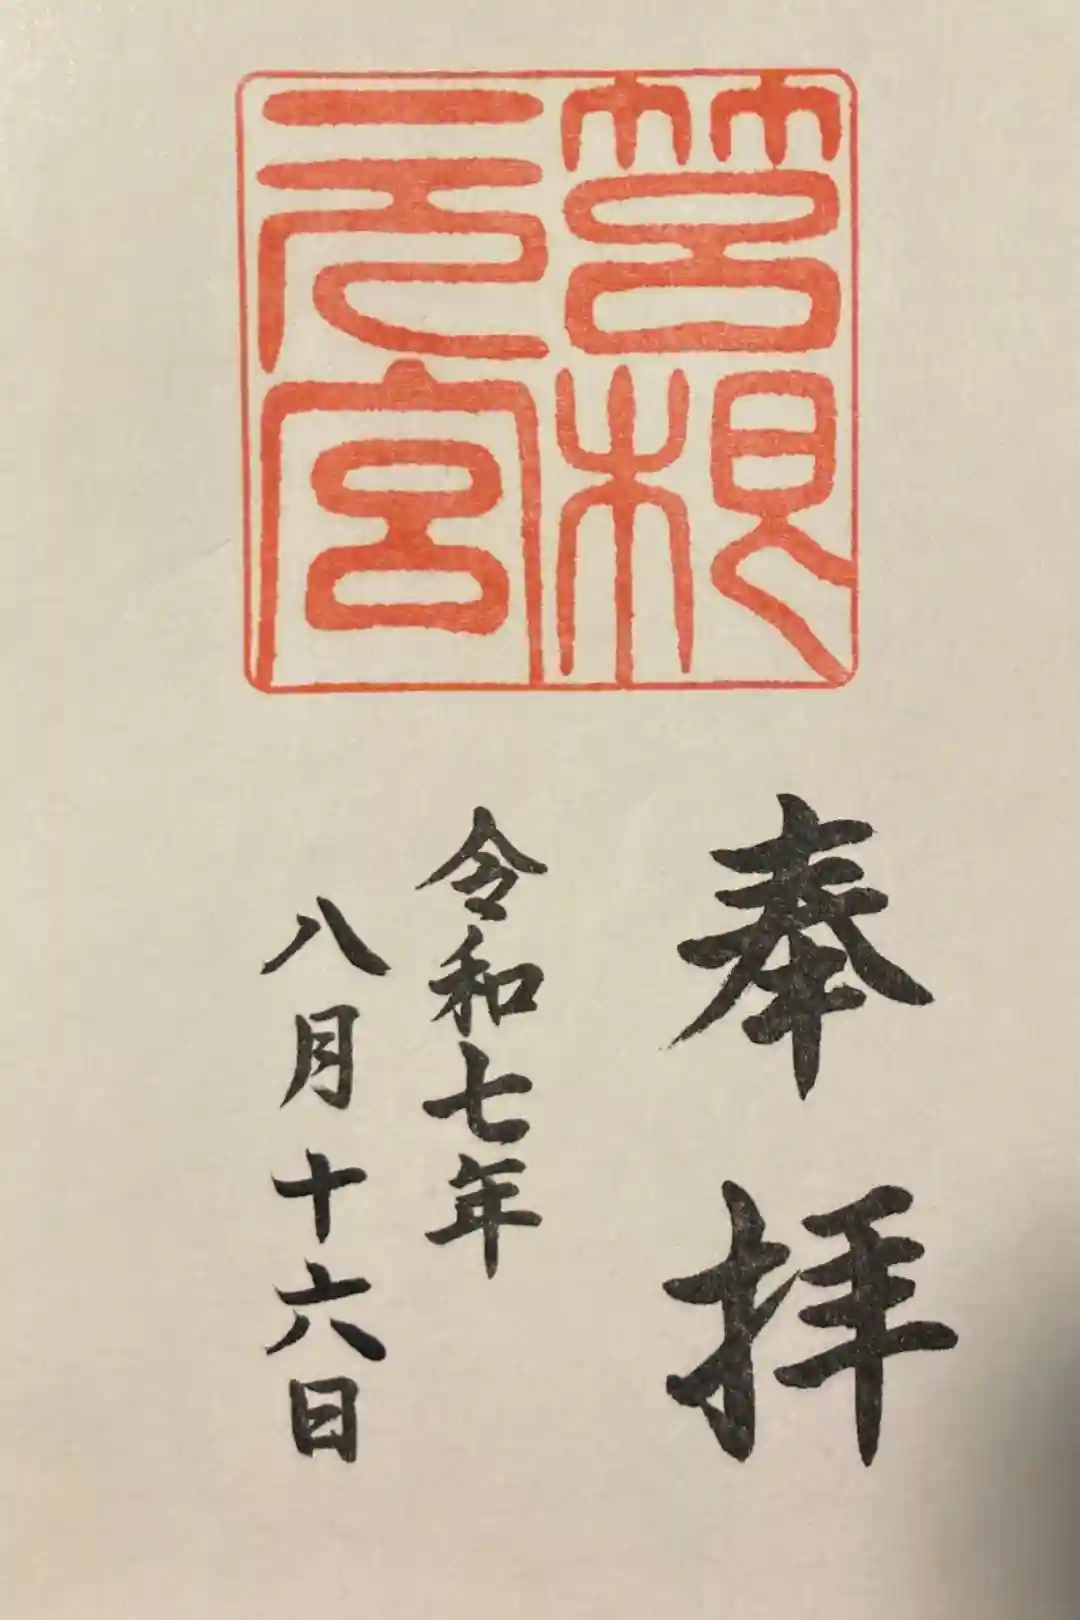 筥根
元宮
奉拝
令和七年
八月十六日